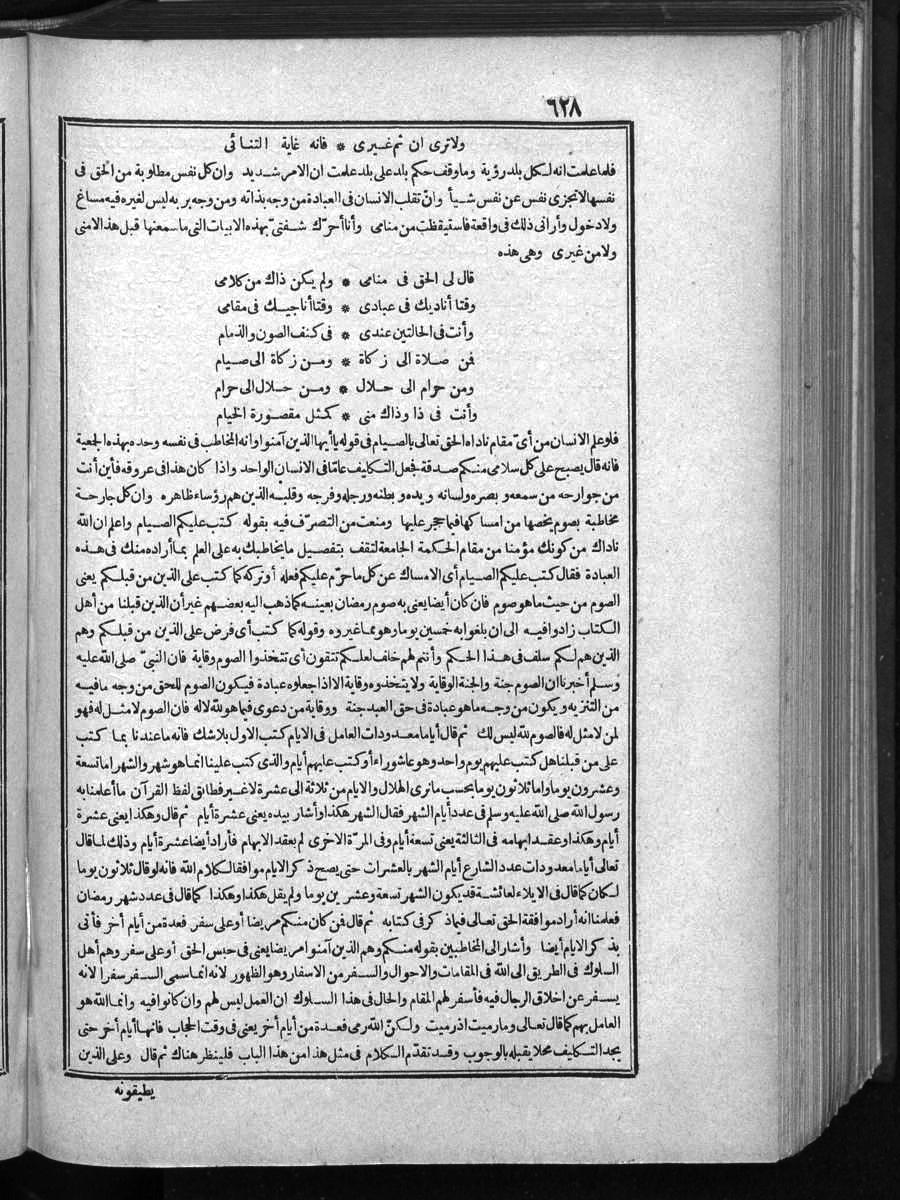 ٦٢٨
ولا ترى ان ثم غيرى * فانه غاية التنائى
فلما علمت انه لكل بلد رؤية وما وقف حكم بلد على بلد علمت ان الامر شديد وان كل نفس مطلوبة من الحق فى
نفسها لا تجزى نفس عن نفس شيأ وانّ تقلب الانسان فى العبادة من وجه بذاته ومن وجه بربه ليس لغيره فيه مساغ
ولا دخول وأرانى ذلك فى واقعة فاستيقظت من منامى وأنا أحرّك شفتىّ بهذه الابيات التى ما سمعتها قبل هذا لا منى
ولا من غيرى وهى هذه
قال لى الحق فى منامى * ولم يكن ذاك من كلامى
وقتا أناديك فى عبادى * وقتا أناجيك فى مقامى
وأنت فى الحالتين عندى * فى كنف الصون والذمام
فمن صلاة الى زكاة * ومن زكاة الى صيام
ومن حرام الى حلال * ومن حلال الى حرام
وأنت فى ذا وذاك منى * كمثل مقصورة الخيام
فلو علم الانسان من أىّ مقام ناداه الحق تعالى بالصيام فى قوله يا أيها الذين آمنوا وانه المخاطب فى نفسه وحده بهذه الجمعية
فانه قال يصبح على كل سلامى منكم صدقة فجعل التكليف عامّا فى الانسان الواحد واذا كان هذا فى عروقه فأين أنت
من جوارحه من سمعه وبصره ولسانه ويده وبطنه ورجله وفرجه وقلبه الذين هم رؤساء ظاهره وان كل جارحة
مخاطبة بصوم يخصها من امساكها فيما حجر عليها ومنعت من التصرّف فيه بقوله كتب عليكم الصيام واعلم ان الله
ناداك من كونك مؤمنا من مقام الحكمة الجامعة لتقف بتفصيل ما يخاطبك به على العلم بما أراده منك فى هذه
العبادة فقال كتب عليكم الصيام أى الامساك عن كل ما حرّم عليكم فعله أو تركه كما كتب على الذين من قبلكم يعنى
الصوم من حيث ما هو صوم فان كان أيضا يعنى به صوم رمضان بعينه كما ذهب اليه بعضهم غير أن الذين قبلنا من أهل
الكتاب زادوا فيه الى ان بلغوا به خمسين يوما وهو مما غيروه وقوله كما كتب أى فرض على الذين من قبلكم وهم
الذين هم لكم سلف فى هذا الحكم وأنتم لهم خلف لعلكم تتقون أى تتخذوا الصوم وقاية فان النبىّ صلى الله عليه
وسلم أخبرنا ان الصوم جنة والجنة الوقاية ولا يتخذوه وقاية الا اذا جعلوه عبادة فيكون الصوم للحق من وجه ما فيه
من التنزيه ويكون من وجه ما هو عبادة فى حق العبد جنة ووقاية من دعوى فيما هو لله لا له فان الصوم لا مثل له فهو
لمن لا مثل له فالصوم لله ليس لك ثم قال أياما معدودات العامل فى الايام كتب الاول بلا شك فانه ما عندنا بما كتب
على من قبلنا هل كتب عليهم يوم واحد وهو عاشوراء أو كتب عليهم أيام والذى كتب علينا انما هو شهر والشهر اما تسعة
وعشرون يوما واما ثلاثون يوما بحسب ما نرى الهلال والايام من ثلاثة الى عشرة لا غير فطابق لفظ القرآن ما أعلمنا به
رسول الله صلى الله عليه وسلم فى عدد أيام الشهر فقال الشهر هكذا وأشار بيده يعنى عشرة أيام ثم قال وهكذا يعنى عشرة
أيام وهكذا وعقد ابهامه فى الثالثة يعنى تسعة أيام وفى المرّة الاخرى لم يعقد الابهام فأراد أيضا عشرة أيام وذلك لما قال
تعالى أياما معدودات عدد الشارع أيام الشهر بالعشرات حتى يصح ذكر الايام موافقا لكلام الله فانه لو قال ثلاثون يوما
لكان كما قال فى الايلاء لعائشة قد يكون الشهر تسعة وعشرين يوما ولم يقل هكذا وهكذا كما قال فى عدد شهر رمضان
فعلمنا انه أراد موافقة الحق تعالى فيما ذكر فى كتابه ثم قال فمن كان منكم مريضا أو على سفر فعدة من أيام أخر فأتى
بذكر الايام أيضا وأشار الى المخاطبين بقوله منكم وهم الذين آمنوا مريضا يعنى فى حبس الحق أو على سفر وهم أهل
السلوك فى الطريق الى الله فى المقامات والاحوال والسفر من الاسفار وهو الظهور لانه انما سمى السفر سفرا لانه
يسفر عن اخلاق الرجال فيه فأسفر لهم المقام والحال فى هذا السلوك ان العمل ليس لهم وان كانوا فيه وانما الله هو
العامل بهم كما قال تعالى وما رميت اذ رميت ولكنّ الله رمى فعدة من أيام أخر يعنى فى وقت الحجاب فانها أيام أخر حتى
يجد التكليف محلا يقبله بالوجوب وقد تقدّم الكلام فى مثل هذا من هذا الباب فلينظر هناك ثم قال وعلى الذين
يطيقونه